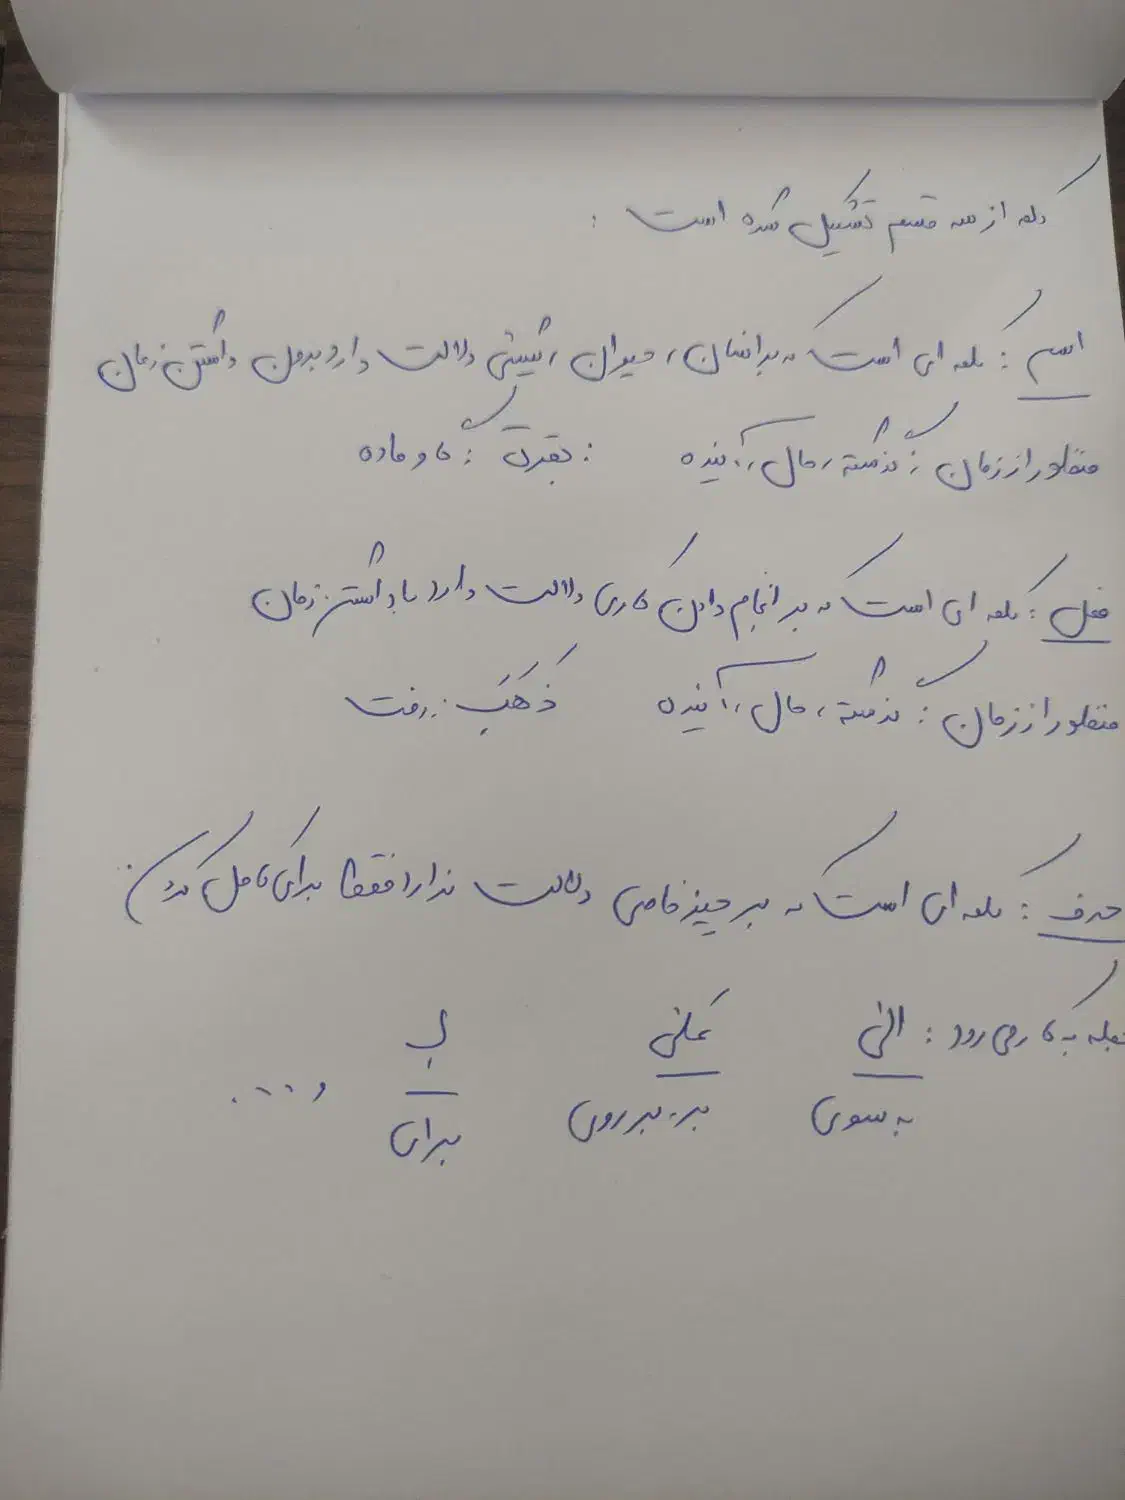 کلمه از سه قسم تشکیل شده است :
اسم : کلمه ای است که بر انسان، حیوان، شیئی دلالت دارد بدون داشتن زمان
منظور از زمان : گذشته، حال، آینده : بقرة : گاو ماده
فعل : کلمه ای است که بر انجام دادن کاری دلالت دارد با داشتن زمان
منظور از زمان : گذشته، حال، آینده ذَهَبَ : رفت
حرف : کلمه ای است که بر چیز خاصی دلالت ندارد فقط برای کامل کردن
جمله به کار می رود : الی علی لِ
به سوی بر، بر روی برای و ....